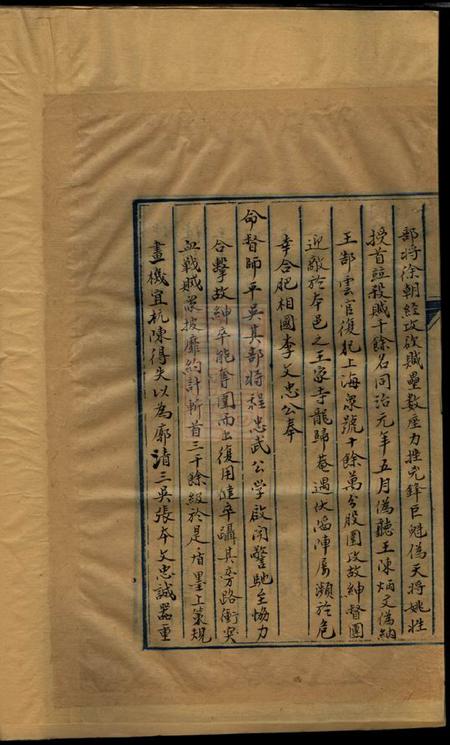 部將徐朝經攻欲賊壘數座力挫兇鋒巨魁偽天將姚姓
授首誼殺賊千餘名同治元年五月偽聽王陳炳文偽納
王郜雲官復犯上海眾號十餘萬分股圍攻故紳督團
迎敵於本邑之王家寺龍歸菴遇伏陷陣屢瀕於危
幸合肥相國李文忠公奉
命督師平吳其部將程忠武公学啟聞警馳至恊力
合擊故紳卒能奮圍而出復用健卒躡其旁路衝突
血戰賊眾披靡約計斬首三千餘級於是盾墨上策規
畫機宜抗陳得失以為廓清三吳張本文忠誠器重